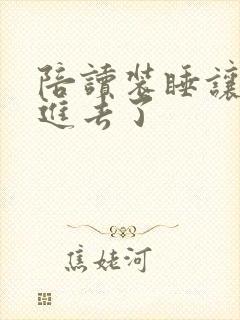 陪讀裝睡讓
進去了
焦姥河